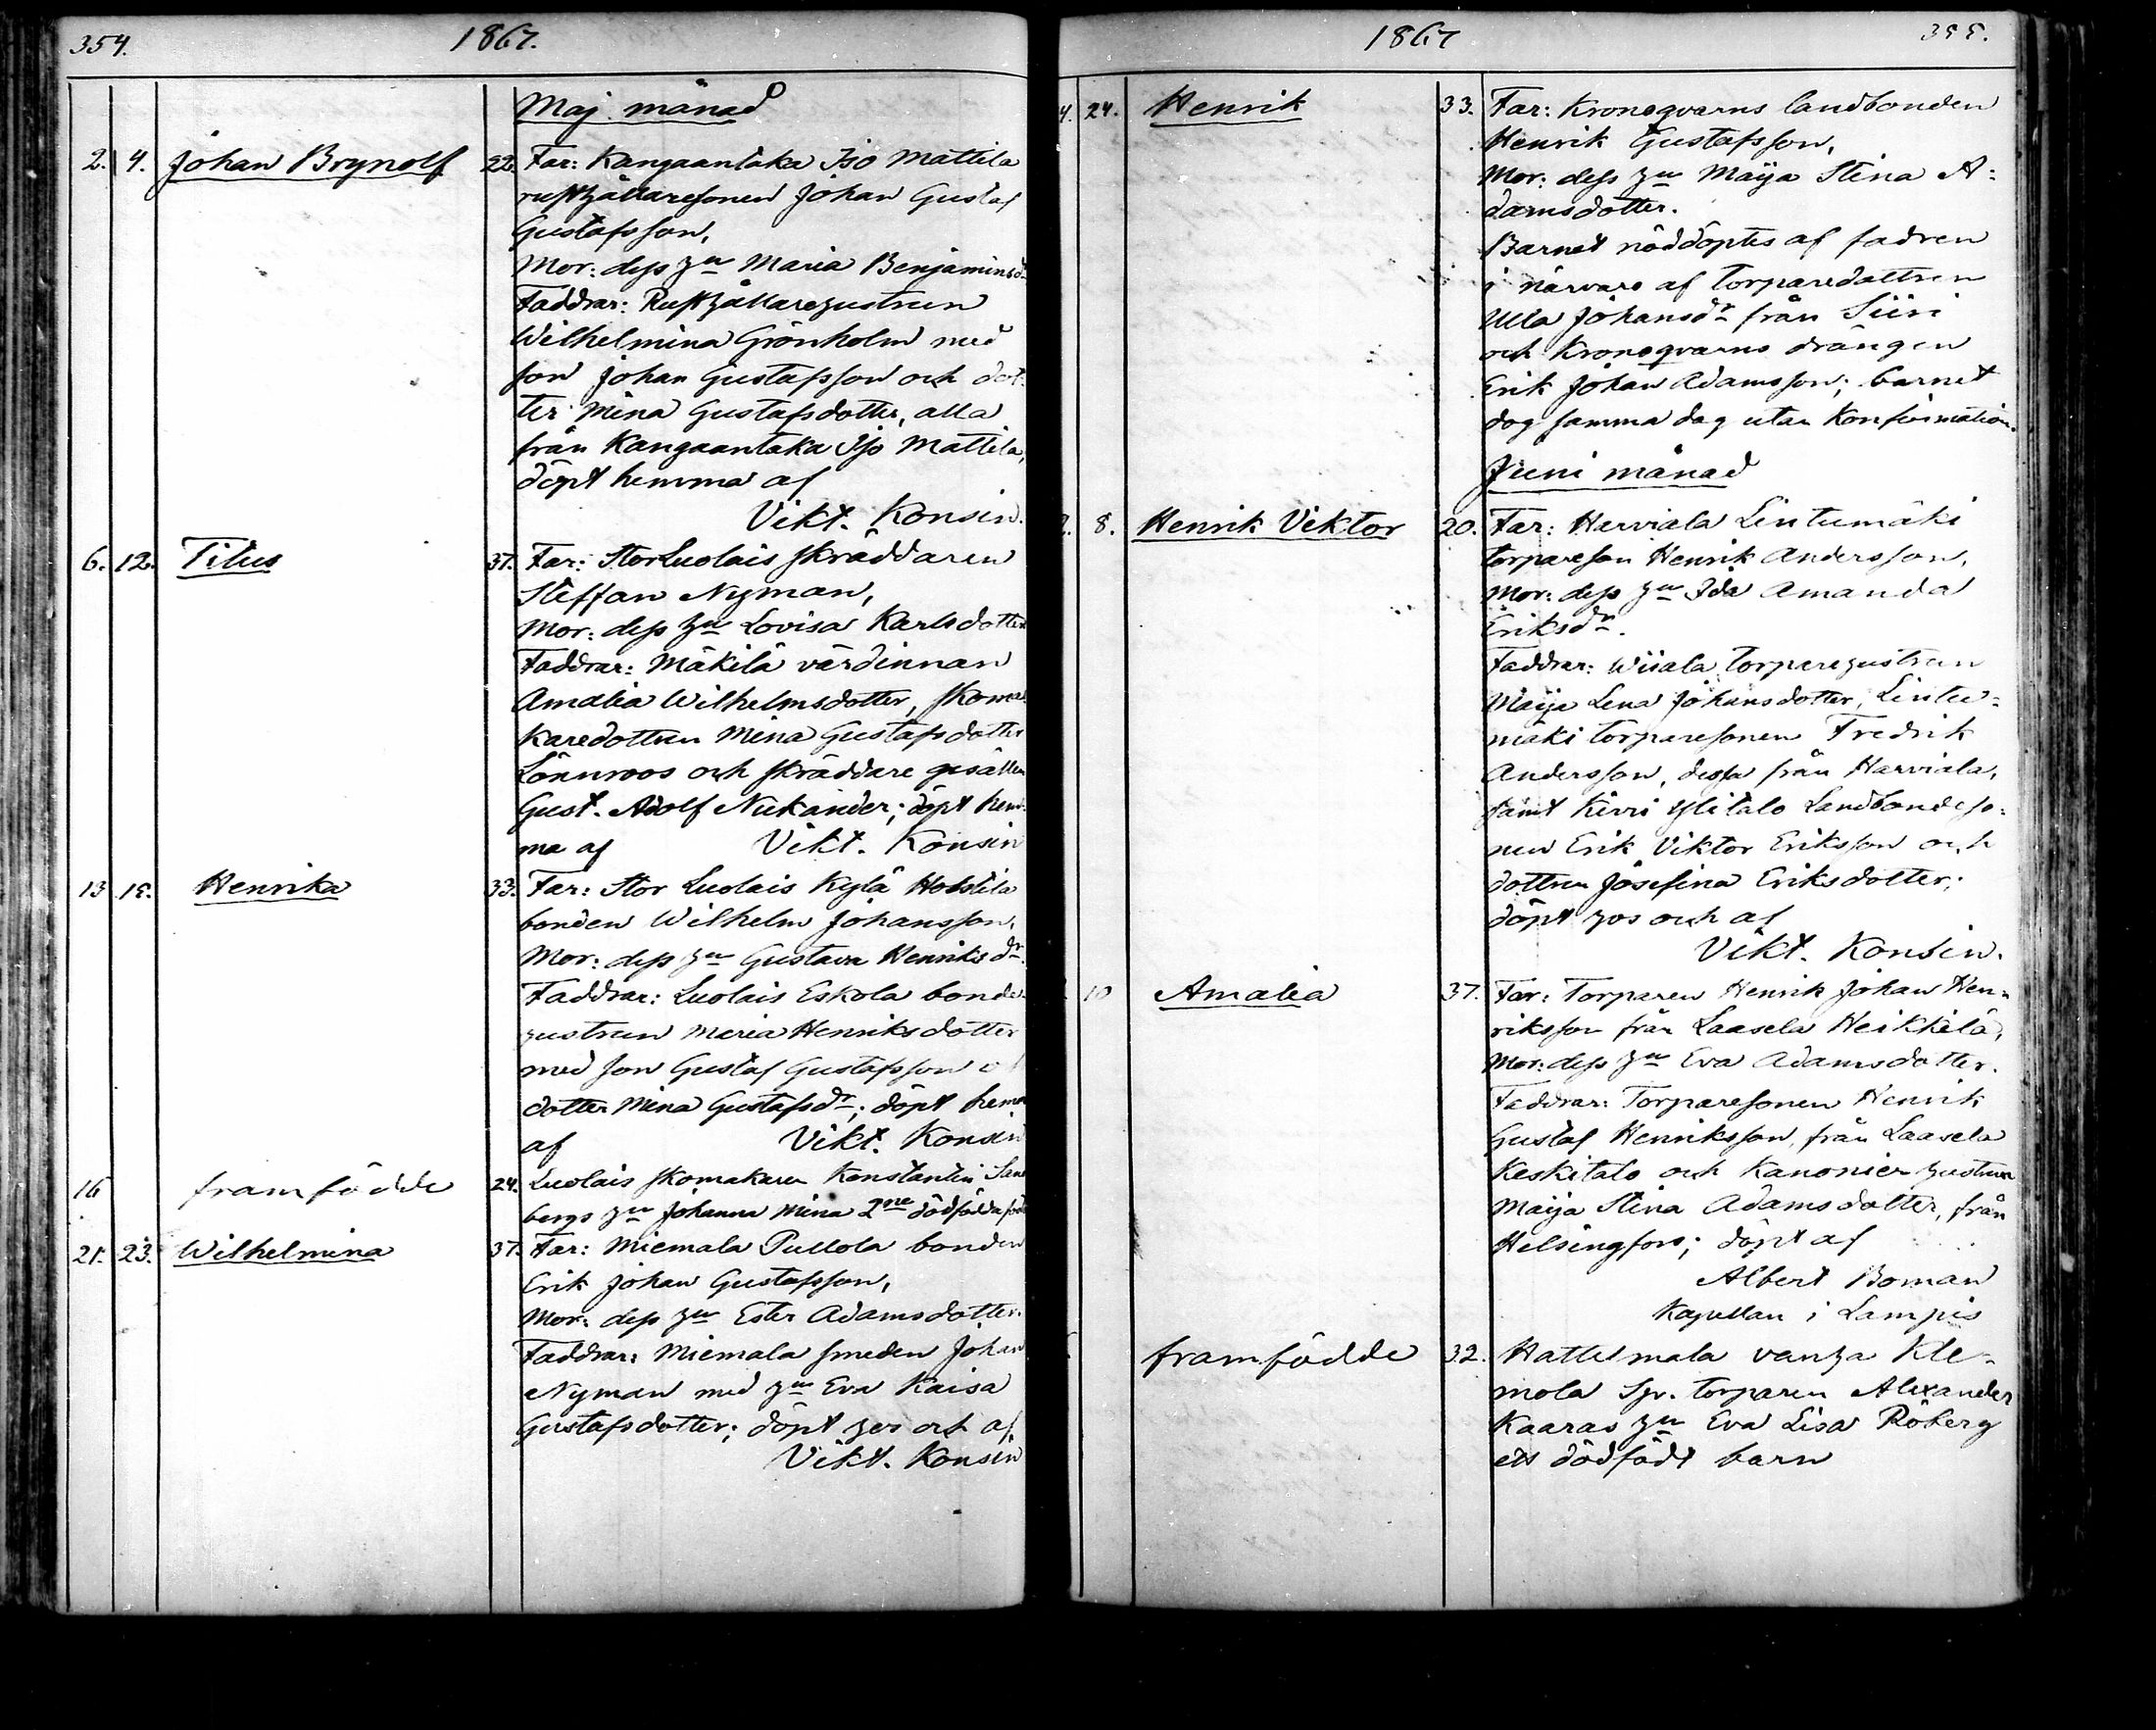 354. 1867.
Maj månad
2. 4. Johan Brynolf 22. Far: Kangaantaka Iso Mattila
rusthållaresonen Johan Gustaf
Gustafsson,
Mor: dess hu Maria Benjaminsd
Faddrar: Rusthållarehustrun
Wilhelmina Grönholm med
son Johan Gustafsson och dot-
ter Mina Gustafsdotter, alla
från Kangaantaka Iso Mattila,
döpt hemma af
Vikt. Konsin.
6. 12. Titus 37. Far: Stor Luolais skräddaren
Steffan Nyman,
Mor: dess hu Lovisa Karlsdotter
Faddrar: Mäkilä värdinnan
Amalia Wilhelmsdotter, skoma-
karedottren Mina Gustafsdotter
Lönnroos och skräddare gesällen
Gust. Adolf Nickander; döpt hem-
ma af Vikt. Konsin
13 15. Henrika 33. Far: Stor Luolais Kylä Hobstila
bonden Wilhelm Johansson,
Mor: dess hu Gustava Henriksdr.
Faddrar: Luolais Eskola bonde-
hustrun Maria Henriksdotter
med son Gustaf Gustafsson
dotter Mina Gustafsdr; döpt hema
af Vikt. Konsin
16 framfödde 24. Luolais skomakaren Konstantin
bergs hu Johanna Mina 2ne dödfödda
21. 23. Wilhelmina 37. Far: Miemala Pullola bonden
Erik Johan Gustafsson,
Mor: dess hu Ester Adamsdotter.
Faddrar: Miemala smeden Johan
Nyman med hu Eva Kaisa
Gustafsdotter; döpt hos och af
Vikt. Konsin
1867 355.
4. 24. Henrik 33. Far: Kronoqvarns landbonden
Henrik Gustafsson,
Mor: dess hu Maija Stina A-
damsdotter.
Barnet nöddöptes af fadren
i närvaro af torparedottren
Ulla Johansdr från Siiri
och Kronoqvarns drängen
Erik Johan Adamsson; barnet
dog samma dag utan Konfirmation.
Juni månad
8. Henrik Viktor 20. Far: Harviala Lintumäki
torpareson Henrik Andersson,
Mor: dess hu Ida Amanda
Eriksdr.
Faddrar: Wiiala torparehustrun
Maija Lena Johansdotter, Lintu-
mäki torparesonen Fredrik
Andersson, dessa från Harviala,
samt Kirri Ylitalo Landbondeso-
nen Erik Viktor Eriksson och
dottren Josefina Eriksdotter;
döpt hos och af
Vikt. Konsin.
10 Amalia 37. Far: Torparen Henrik Johan Hen-
riksson från Laasela Heikkilä,
Mor: dess hu Eva Adamsdotter.
Faddrar: Torparesonen Henrik
Gustaf Henriksson, från Laasela
Keskitalo och Kanonier hustrun
Maija Stina Adamsdotter, från
Helsingfors; döpt af
Albert Boman
Kapellan i Lampis
framfödde 32. Hattelmala vanha Kle-
mola Spr. torparen Alexander
Kaaras hu Eva Lisa Röberg
ett dödfödt barn